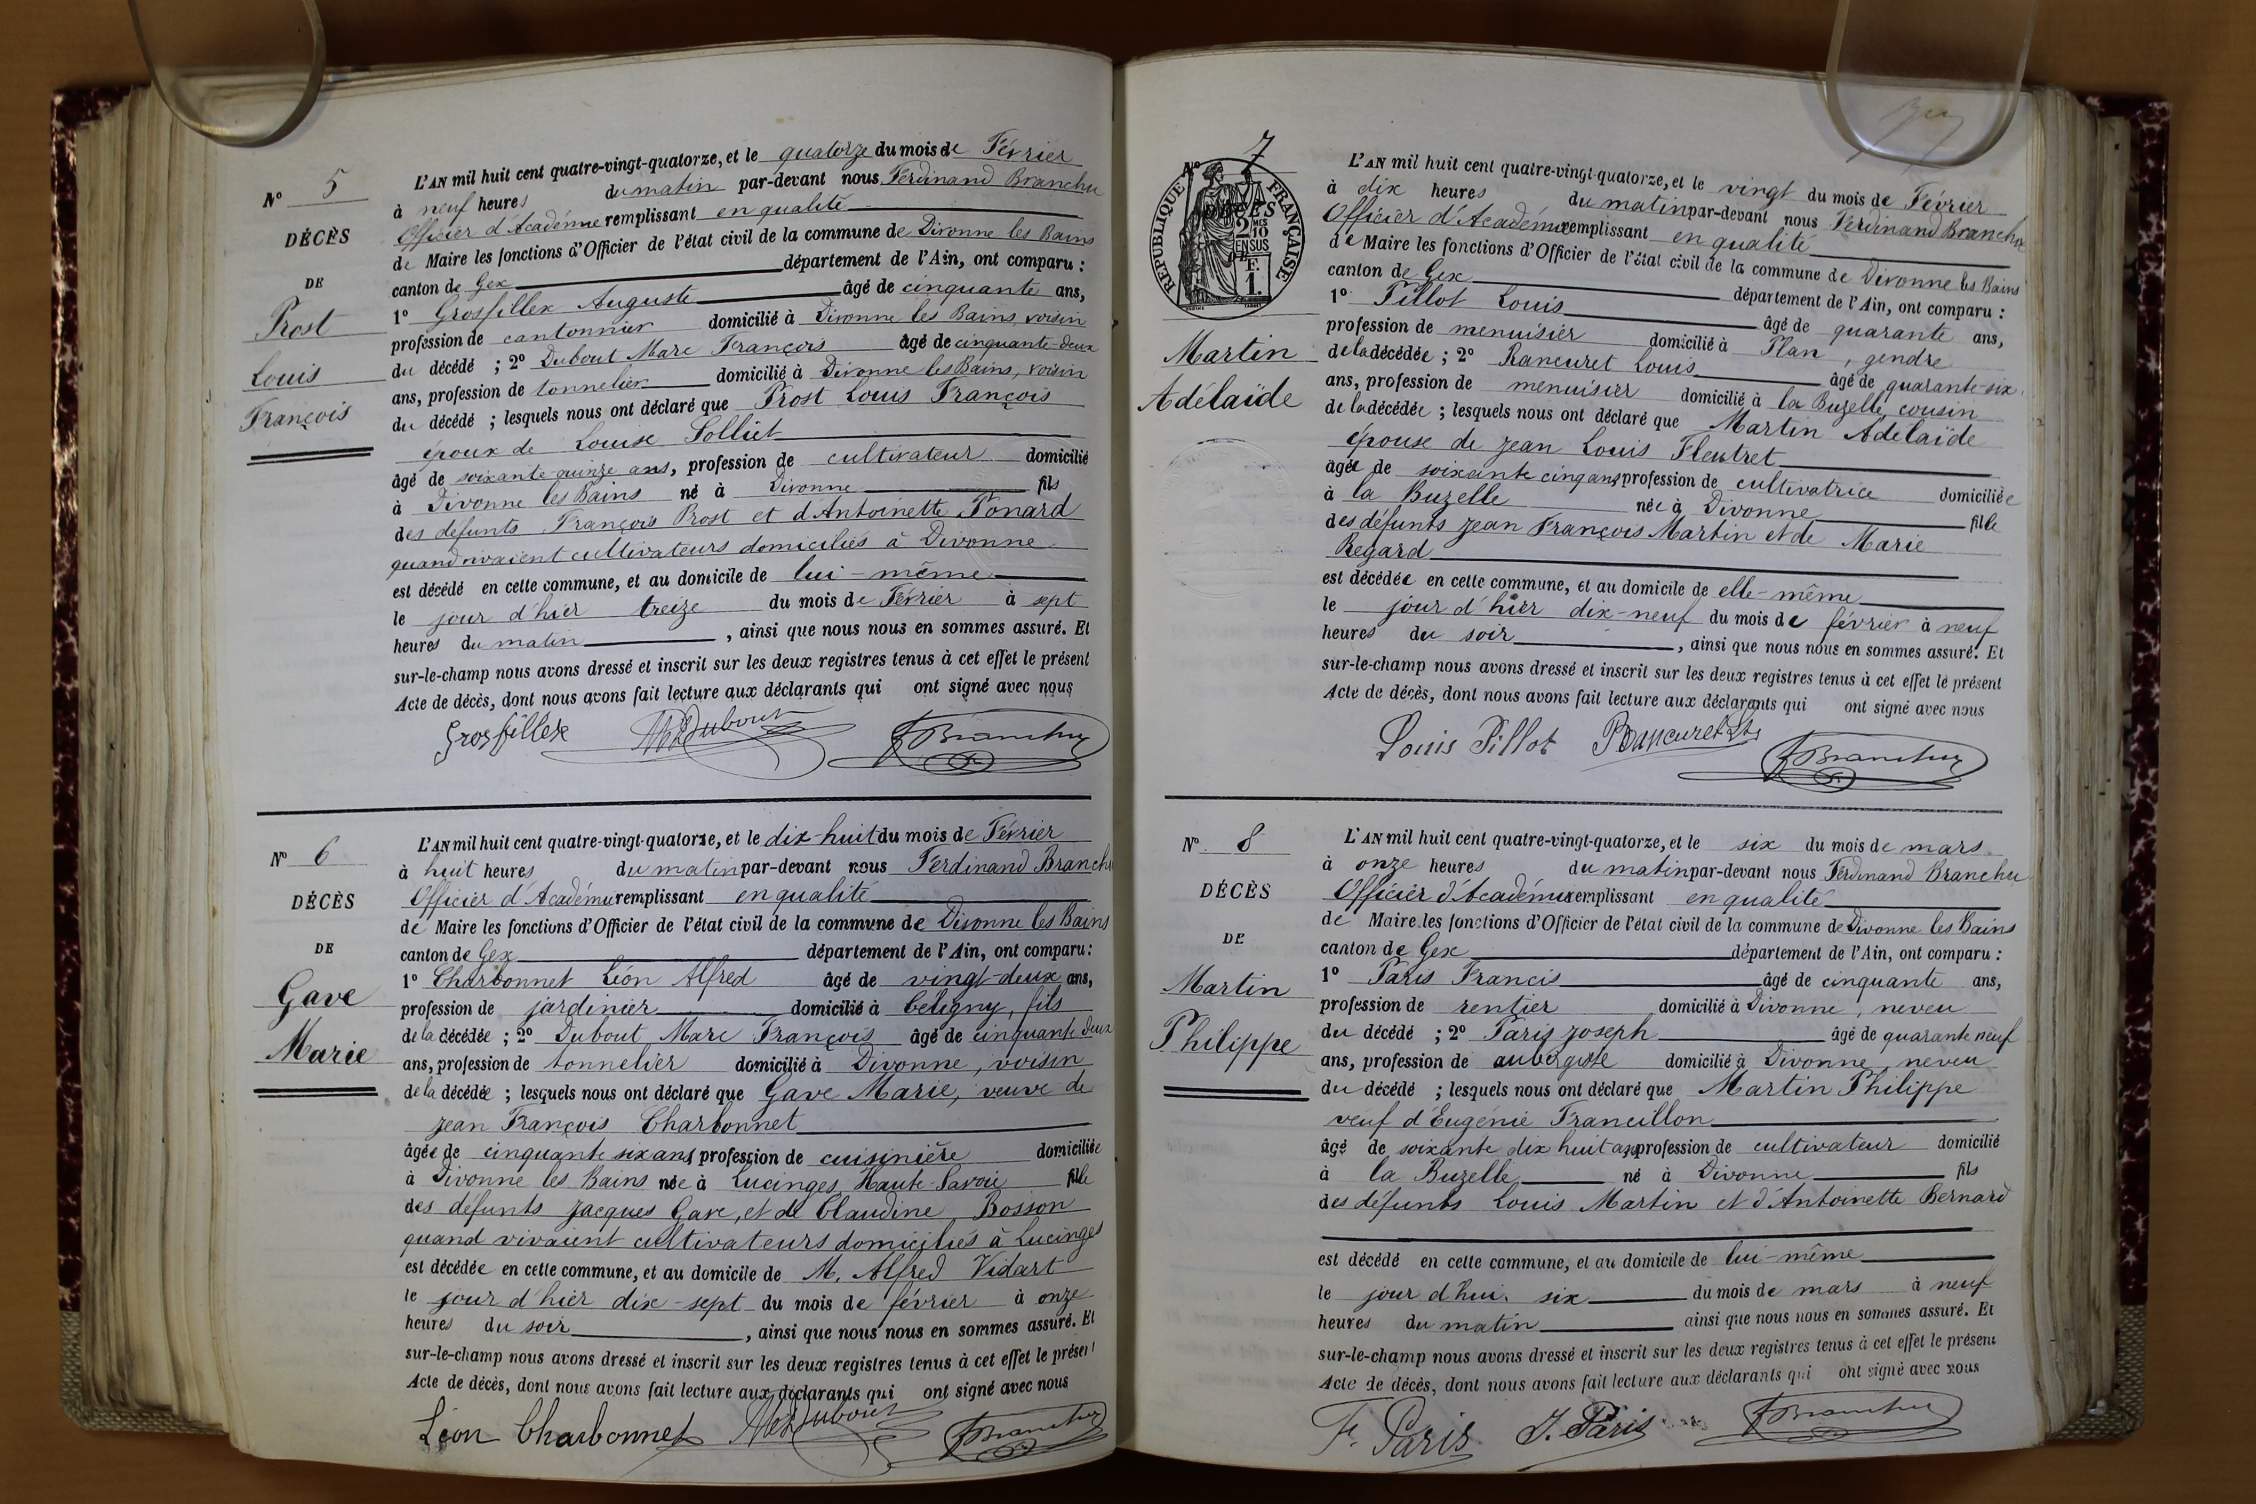 N° 5
DÉCÈS
DE
Prost
Louis
François
L'AN mil huit cent quatre-vingt-quatorze, et le quatorze du mois de Février
à neuf heures du matin par-devant nous Ferdinand Branchu
Officier d'Académie remplissant en qualité
de Maire les fonctions d'Officier de l'état civil de la commune de Divonne les Bains
canton de Gex département de l'Ain, ont comparu :
1° Grosfillex Auguste âgé de cinquante ans,
profession de cantonnier domicilié à Divonne les Bains, voisin
du décédé ; 2° Dubout Marc François âgé de cinquante-deux
ans, profession de tonnelier domicilié à Divonne les Bains, voisin
du décédé ; lesquels nous ont déclaré que Prost Louis François
époux de Louise Solliet
âgé de soixante-quinze ans, profession de cultivateur domicilié
à Divonne les Bains né à Divonne fils
des défunts François Prost et d'Antoinette Ponard
quand vivaient cultivateurs domiciliés à Divonne
est décédé en cette commune, et au domicile de lui-même
le jour d'hier treize du mois de Février à sept
heures du matin , ainsi que nous nous en sommes assuré. Et
sur-le-champ nous avons dressé et inscrit sur les deux registres tenus à cet effet le présent
Acte de décès, dont nous avons fait lecture aux déclarants qui ont signé avec nous
Grosfillex Dubout F Branchu
N° 6
DÉCÈS
DE
Gave
Marie
L'AN mil huit cent quatre-vingt-quatorze, et le dix-huit du mois de Février
à huit heures du matin par-devant nous Ferdinand Branchu
Officier d'Académie remplissant en qualité
de Maire les fonctions d'Officier de l'état civil de la commune de Divonne les Bains
canton de Gex département de l'Ain, ont comparu :
1° Charbonnet Léon Alfred âgé de vingt-deux ans,
profession de jardinier domicilié à Beligny, fils
de la décédée ; 2° Dubout Marc François âgé de cinquante deux
ans, profession de tonnelier domicilié à Divonne, voisin
de la décédée ; lesquels nous ont déclaré que Gave Marie, veuve de
Jean François Charbonnet
âgée de cinquante six ans, profession de cuisinière domiciliée
à Divonne les Bains née à Lucinges Haute-Savoie fille
des défunts Jacques Gave, et de Claudine Bosson
quand vivaient cultivateurs domiciliés à Lucinges
est décédée en cette commune, et au domicile de M. Alfred Vidart
le jour d'hier dix-sept du mois de février à onze
heures du soir , ainsi que nous nous en sommes assuré. Et
sur-le-champ nous avons dressé et inscrit sur les deux registres tenus à cet effet le présent
Acte de décès, dont nous avons fait lecture aux déclarants qui ont signé avec nous
Léon Charbonnet Dubout F Branchu
N° 7
RÉPUBLIQUE FRANÇAISE
DÉCÈS
2/10
EN SUS
F.
1.
Martin
Adélaïde
L'AN mil huit cent quatre-vingt-quatorze, et le vingt du mois de Février
à dix heures du matin par-devant nous Ferdinand Branchu
Officier d'Académie remplissant en qualité
de Maire les fonctions d'Officier de l'état civil de la commune de Divonne les Bains
canton de Gex département de l'Ain, ont comparu :
1° Pillot Louis âgé de quarante ans,
profession de menuisier domicilié à Plan, gendre
de la décédée ; 2° Rancuret Louis âgé de quarante-six
ans, profession de menuisier domicilié à la Buzelle, cousin
de la décédée ; lesquels nous ont déclaré que Martin Adélaïde
épouse de Jean Louis Fleutret
âgée de soixante cinq ans, profession de cultivatrice domiciliée
à la Buzelle née à Divonne fille
des défunts Jean François Martin et de Marie
Regard
est décédée en cette commune, et au domicile de elle-même
le jour d'hier dix-neuf du mois de février à neuf
heures du soir , ainsi que nous nous en sommes assuré. Et
sur-le-champ nous avons dressé et inscrit sur les deux registres tenus à cet effet le présent
Acte de décès, dont nous avons fait lecture aux déclarants qui ont signé avec nous
Louis Pillot Rancuret Ls F Branchu
N° 8
DÉCÈS
DE
Martin
Philippe
L'AN mil huit cent quatre-vingt-quatorze, et le six du mois de mars
à onze heures du matin par-devant nous Ferdinand Branchu
Officier d'Académie remplissant en qualité
de Maire les fonctions d'Officier de l'état civil de la commune de Divonne les Bains
canton de Gex département de l'Ain, ont comparu :
1° Paris Francis âgé de cinquante ans,
profession de rentier domicilié à Divonne, neveu
du décédé ; 2° Paris Joseph âgé de quarante neuf
ans, profession de aubergiste domicilié à Divonne, neveu
du décédé ; lesquels nous ont déclaré que Martin Philippe
veuf d'Eugénie Francillon
âgé de soixante dix huit ans, profession de cultivateur domicilié
à la Buzelle né à Divonne fils
des défunts Louis Martin et d'Antoinette Bernard
est décédé en cette commune, et au domicile de lui-même
le jour d'hui six du mois de mars à neuf
heures du matin ainsi que nous nous en sommes assuré. Et
sur-le-champ nous avons dressé et inscrit sur les deux registres tenus à cet effet le présent
Acte de décès, dont nous avons fait lecture aux déclarants qui ont signé avec nous
F. Paris J. Paris F Branchu